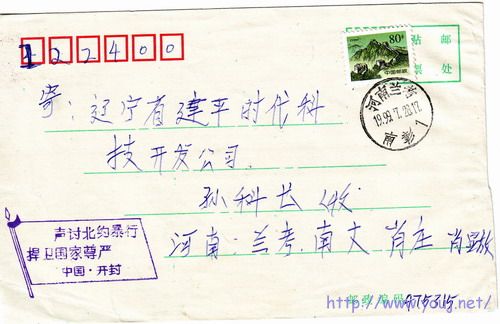 122400
80分
中国邮政
贴邮
票处
寄：辽宁省建平时代科
技开发公司
孙科长（收
河南兰考
1999.7.28.17
声讨北约暴行
捍卫国家尊严
中国·开封
河南：兰考.南文 肖庄 肖
邮政编码 475315
http://www.youg.net/